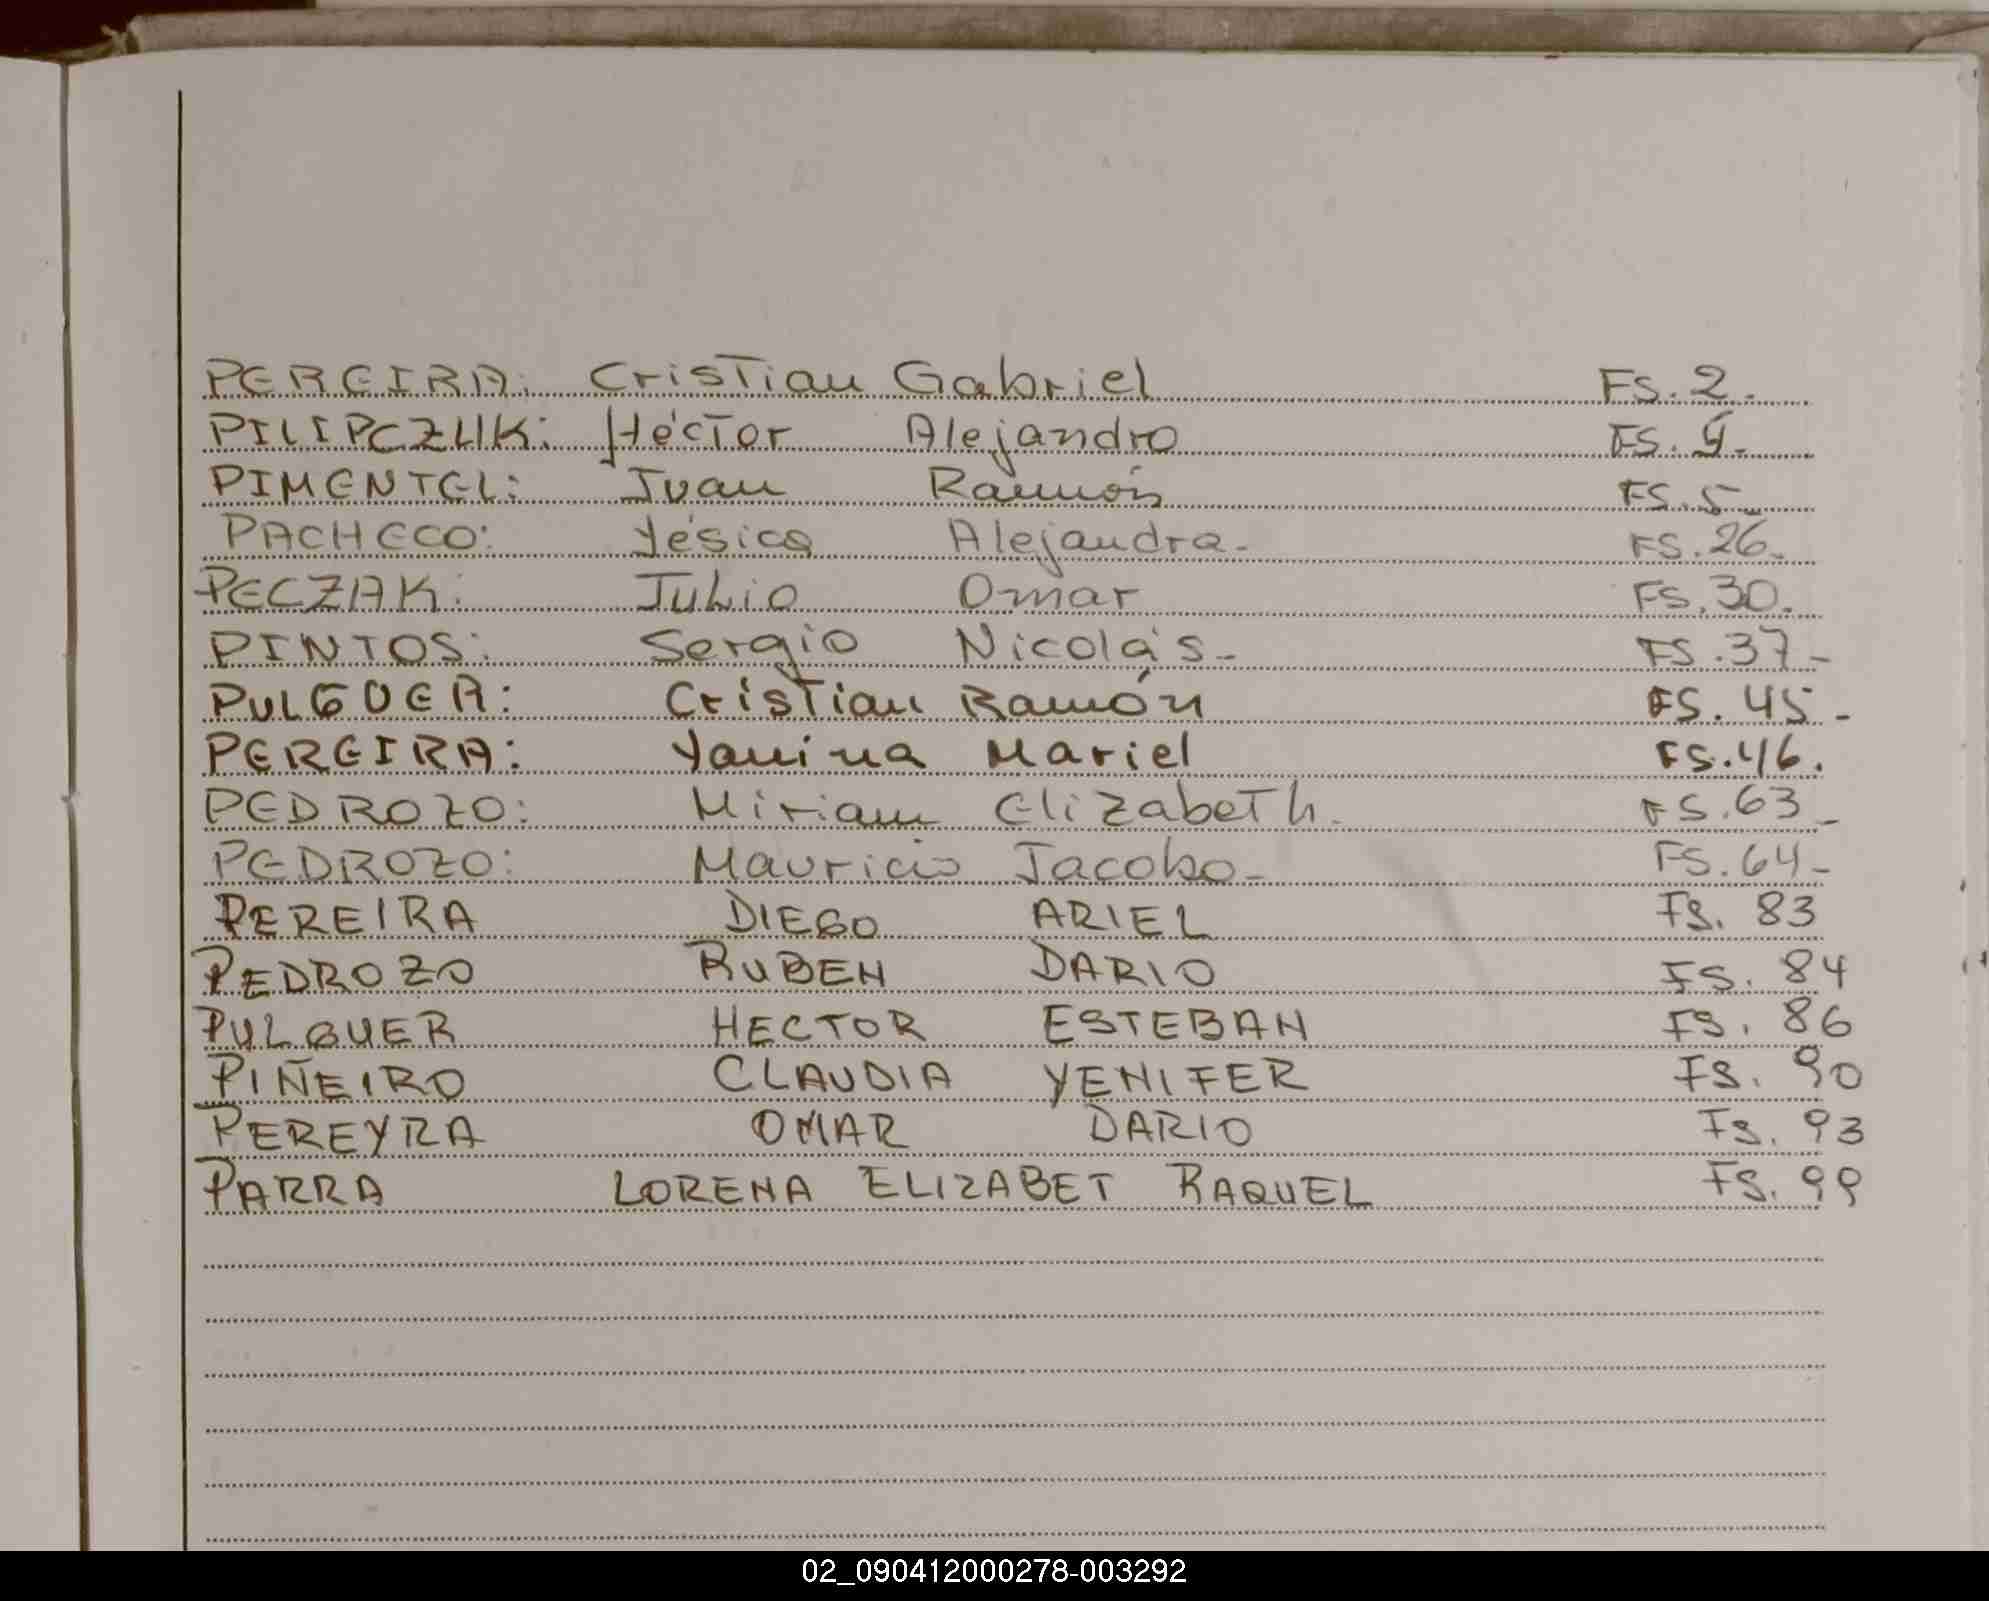 PEREIRA: Cristian Gabriel FS. 2.
PILIPCZUK: Héctor Alejandro FS. 4.
PIMENTEL: Juan Ramón FS. 5
PACHECO: Yésica Alejandra- FS. 26.
PECZAK: Julio Omar FS. 30.
PINTOS: Sergio Nicolás- FS. 37-
PULGUER: Cristian Ramón FS. 45-
PEREIRA: Yanina Mariel FS. 46.
PEDROZO: Miriam Elizabeth. FS. 63-
PEDROZO: Mauricio Jacobo- FS. 64-
PEREIRA DIEGO ARIEL FS. 83
PEDROZO RUBEN DARIO FS. 84
PULGUER HECTOR ESTEBAN FS. 86
PIÑEIRO CLAUDIA YENIFER FS. 90
PEREYRA OMAR DARIO FS. 93
PARRA LORENA ELIZABET RAQUEL FS. 99
02_090412000278-003292